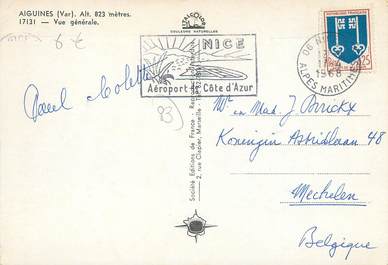 AIGUINES (Var). Alt. 823 mètres.
17131 — Vue générale.
6 €
COULEURS NATURELLES
NICE
Aéroport de la Côte d'Azur
06 NICE
1968
ALPES MARITIMES
REPUBLIQUE FRANÇAISE
0,25
Paul Colette
83
Société Editions de France - 
2, rue Clapier, Marseille - Tél.
Mr en Mad. J. Brickx
Koningin Astridlaan 48
Mechelen
Belgique